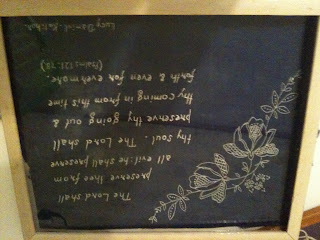 The Lord shall
preserve thee from
all evil: he shall preserve
thy soul. The Lord shall
preserve thy going out &
thy coming in from this time
forth & even for evermore.
(Psalms 121:78)
Lucy Daniel